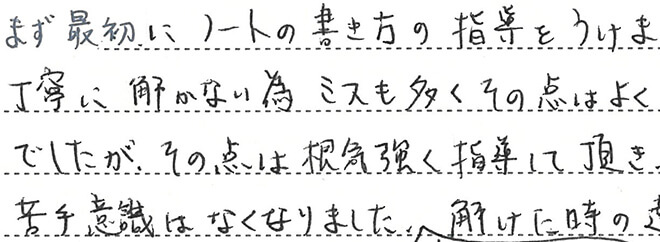 まず最初にノートの書き方の指導をうけま
丁寧に解かない為ミスも多くその点はよく
でしたが、その点は根気強く指導して頂き、
苦手意識はなくなりました。解けた時の